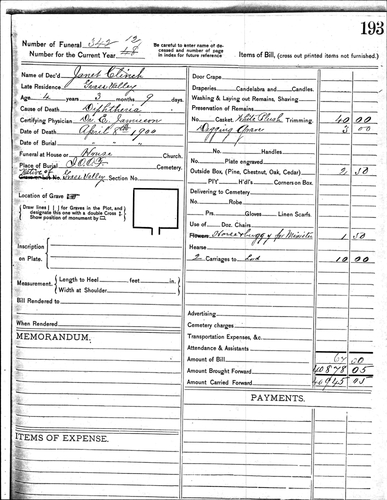 193
Number of Funeral 342 12
Number for the Current Year 48
Be carefully to enter name of deceased and number of page in index for future reference
Items of Bill, (cross out printed items not furnished.)
Name of Dec'd Janet Clinch
Late Residence Grass Valley
Age 4 years 3 months 9 days.
Cause of Death Diphtheria
Certifying Physician Dr. E. Jamieson
Date of Death April 1900
Date of Burial " " "
Funeral at House or House Church.
Place of Burial I.O.O.F. Cemetery.
Native of Grass Valley Section No.
Location of Grave
Draw lines | | for Graves in the Plot, and designate this one with a double Cross
Show position of monument by
Inscription on Plate.
Measurement. Length to Heel feet in.
Width at Shoulder "
Bill Rendered to
When Rendered
MEMORANDUM.
ITEMS OF EXPENSE.
Door Crape
Draperies Candelabra and Candles.
Washing & Laying out Remains, Shaving
Preservation of Remains
No. Casket, White Plush Trimming. 40 00
Digging Grave 5 00
No. Handles
Plate engraved
Outside Box, (Pine, Chestnut, Oak, Cedar) 2 50
PIY H'd's Corners on Box.
Delivering to Cemetery
No. Robe
Prs. Gloves Linen Scarfs.
Use of Doz. Chairs
Flowers Horse & buggy for Minister 1 50
Hearse
2 Carriages to 10 00
Advertising
Cemetery charges
Transportation Expenses, &c.
Attendance & Assistants
Amount of Bill 67 00
Amount Brought Forward 40878 05
Amount Carried Forward 40945 05
PAYMENTS.